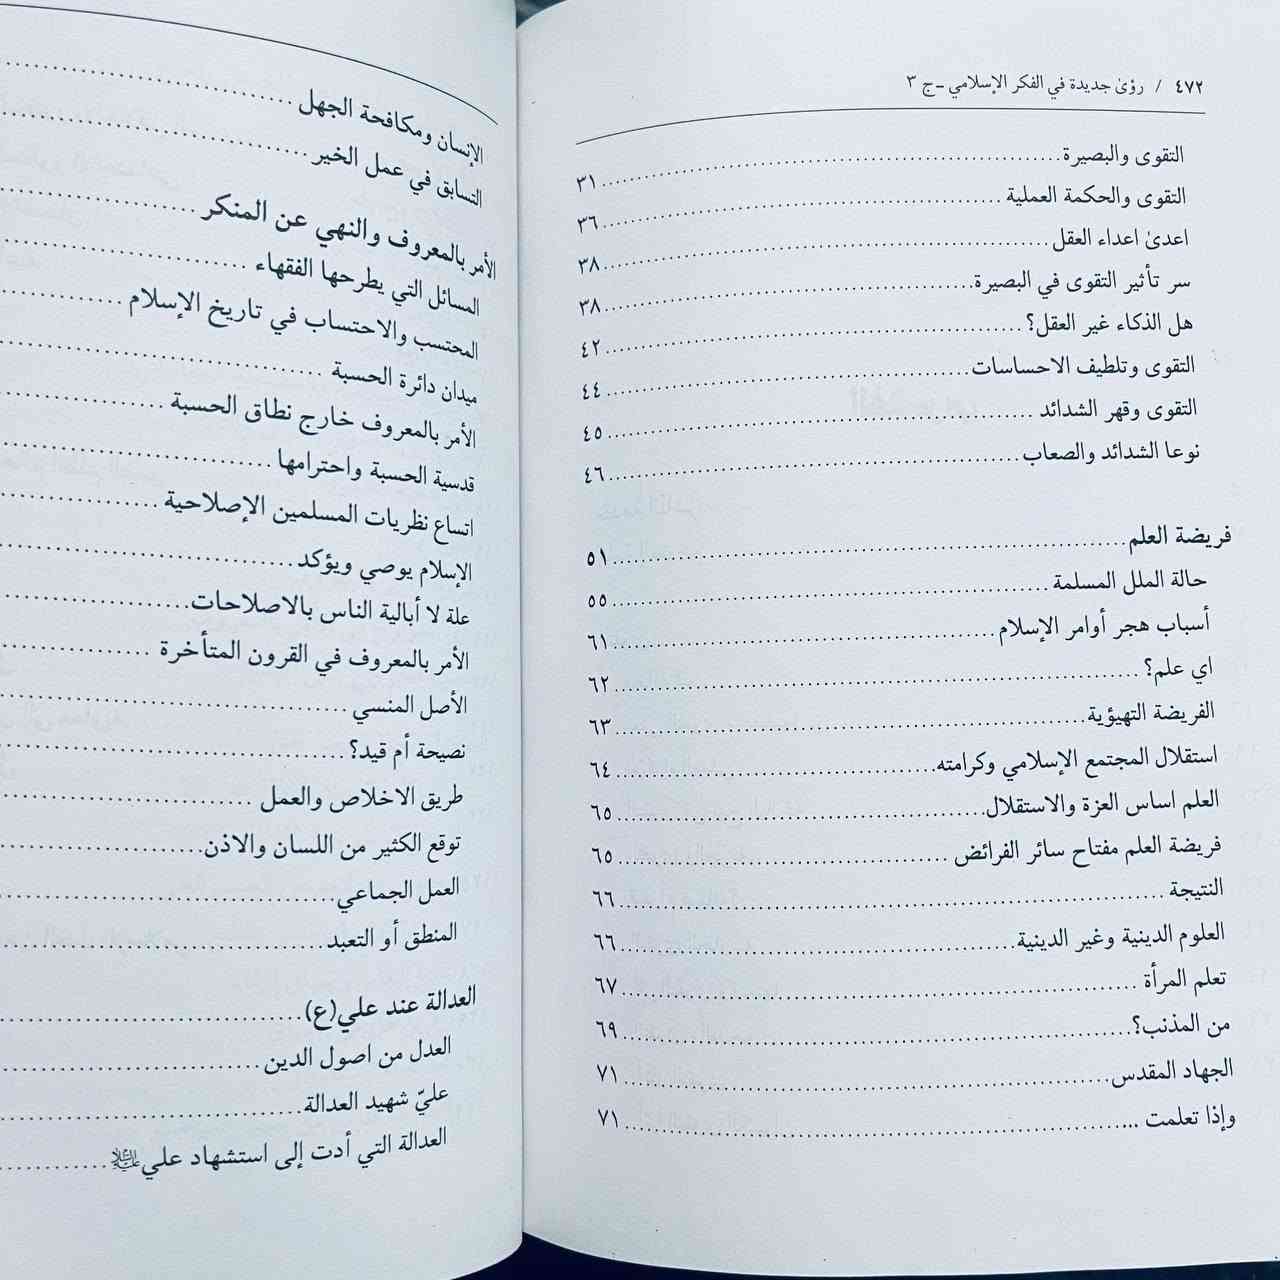 ٤٧٢ / رؤىٰ جديدة في الفكر الإسلامي ـ ج ٣
التقوى والبصيرة ٣١
التقوى والحكمة العملية ٣٦
اعدىٰ اعداء العقل ٣٨
سر تأثير التقوى في البصيرة ٣٨
هل الذكاء غير العقل؟ ٤٢
التقوى وتلطيف الاحساسات ٤٤
التقوى وقهر الشدائد ٤٥
نوعا الشدائد والصعاب ٤٦
فريضة العلم ٥١
حالة الملل المسلمة ٥٥
أسباب هجر أوامر الإسلام ٦١
اي علم؟ ٦٢
الفريضة التهيؤية ٦٣
استقلال المجتمع الإسلامي وكرامته ٦٤
العلم اساس العزة والاستقلال ٦٥
فريضة العلم مفتاح سائر الفرائض ٦٥
النتيجة ٦٦
العلوم الدينية وغير الدينية ٦٦
تعلم المرأة ٦٧
من المذنب؟ ٦٩
الجهاد المقدس ٧١
وإذا تعلمت ... ٧١
الإنسان ومكافحة الجهل
التسابق في عمل الخير
الأمر بالمعروف والنهي عن المنكر
المسائل التي يطرحها الفقهاء
المحتسب والاحتساب في تاريخ الإسلام
ميدان دائرة الحسبة
الأمر بالمعروف خارج نطاق الحسبة
قدسية الحسبة واحترامها
اتساع نظريات المسلمين الإصلاحية
الإسلام يوصي ويؤكد
علة لا أبالية الناس بالاصلاحات
الأمر بالمعروف في القرون المتأخرة
الأصل المنسي
نصيحة أم قيد؟
طريق الاخلاص والعمل
توقع الكثير من اللسان والاذن
العمل الجماعي
المنطق أو التعبد
العدالة عند علي(ع)
العدل من اصول الدين
عليّ شهيد العدالة
العدالة التي أدت إلى استشهاد علي عليه السلام